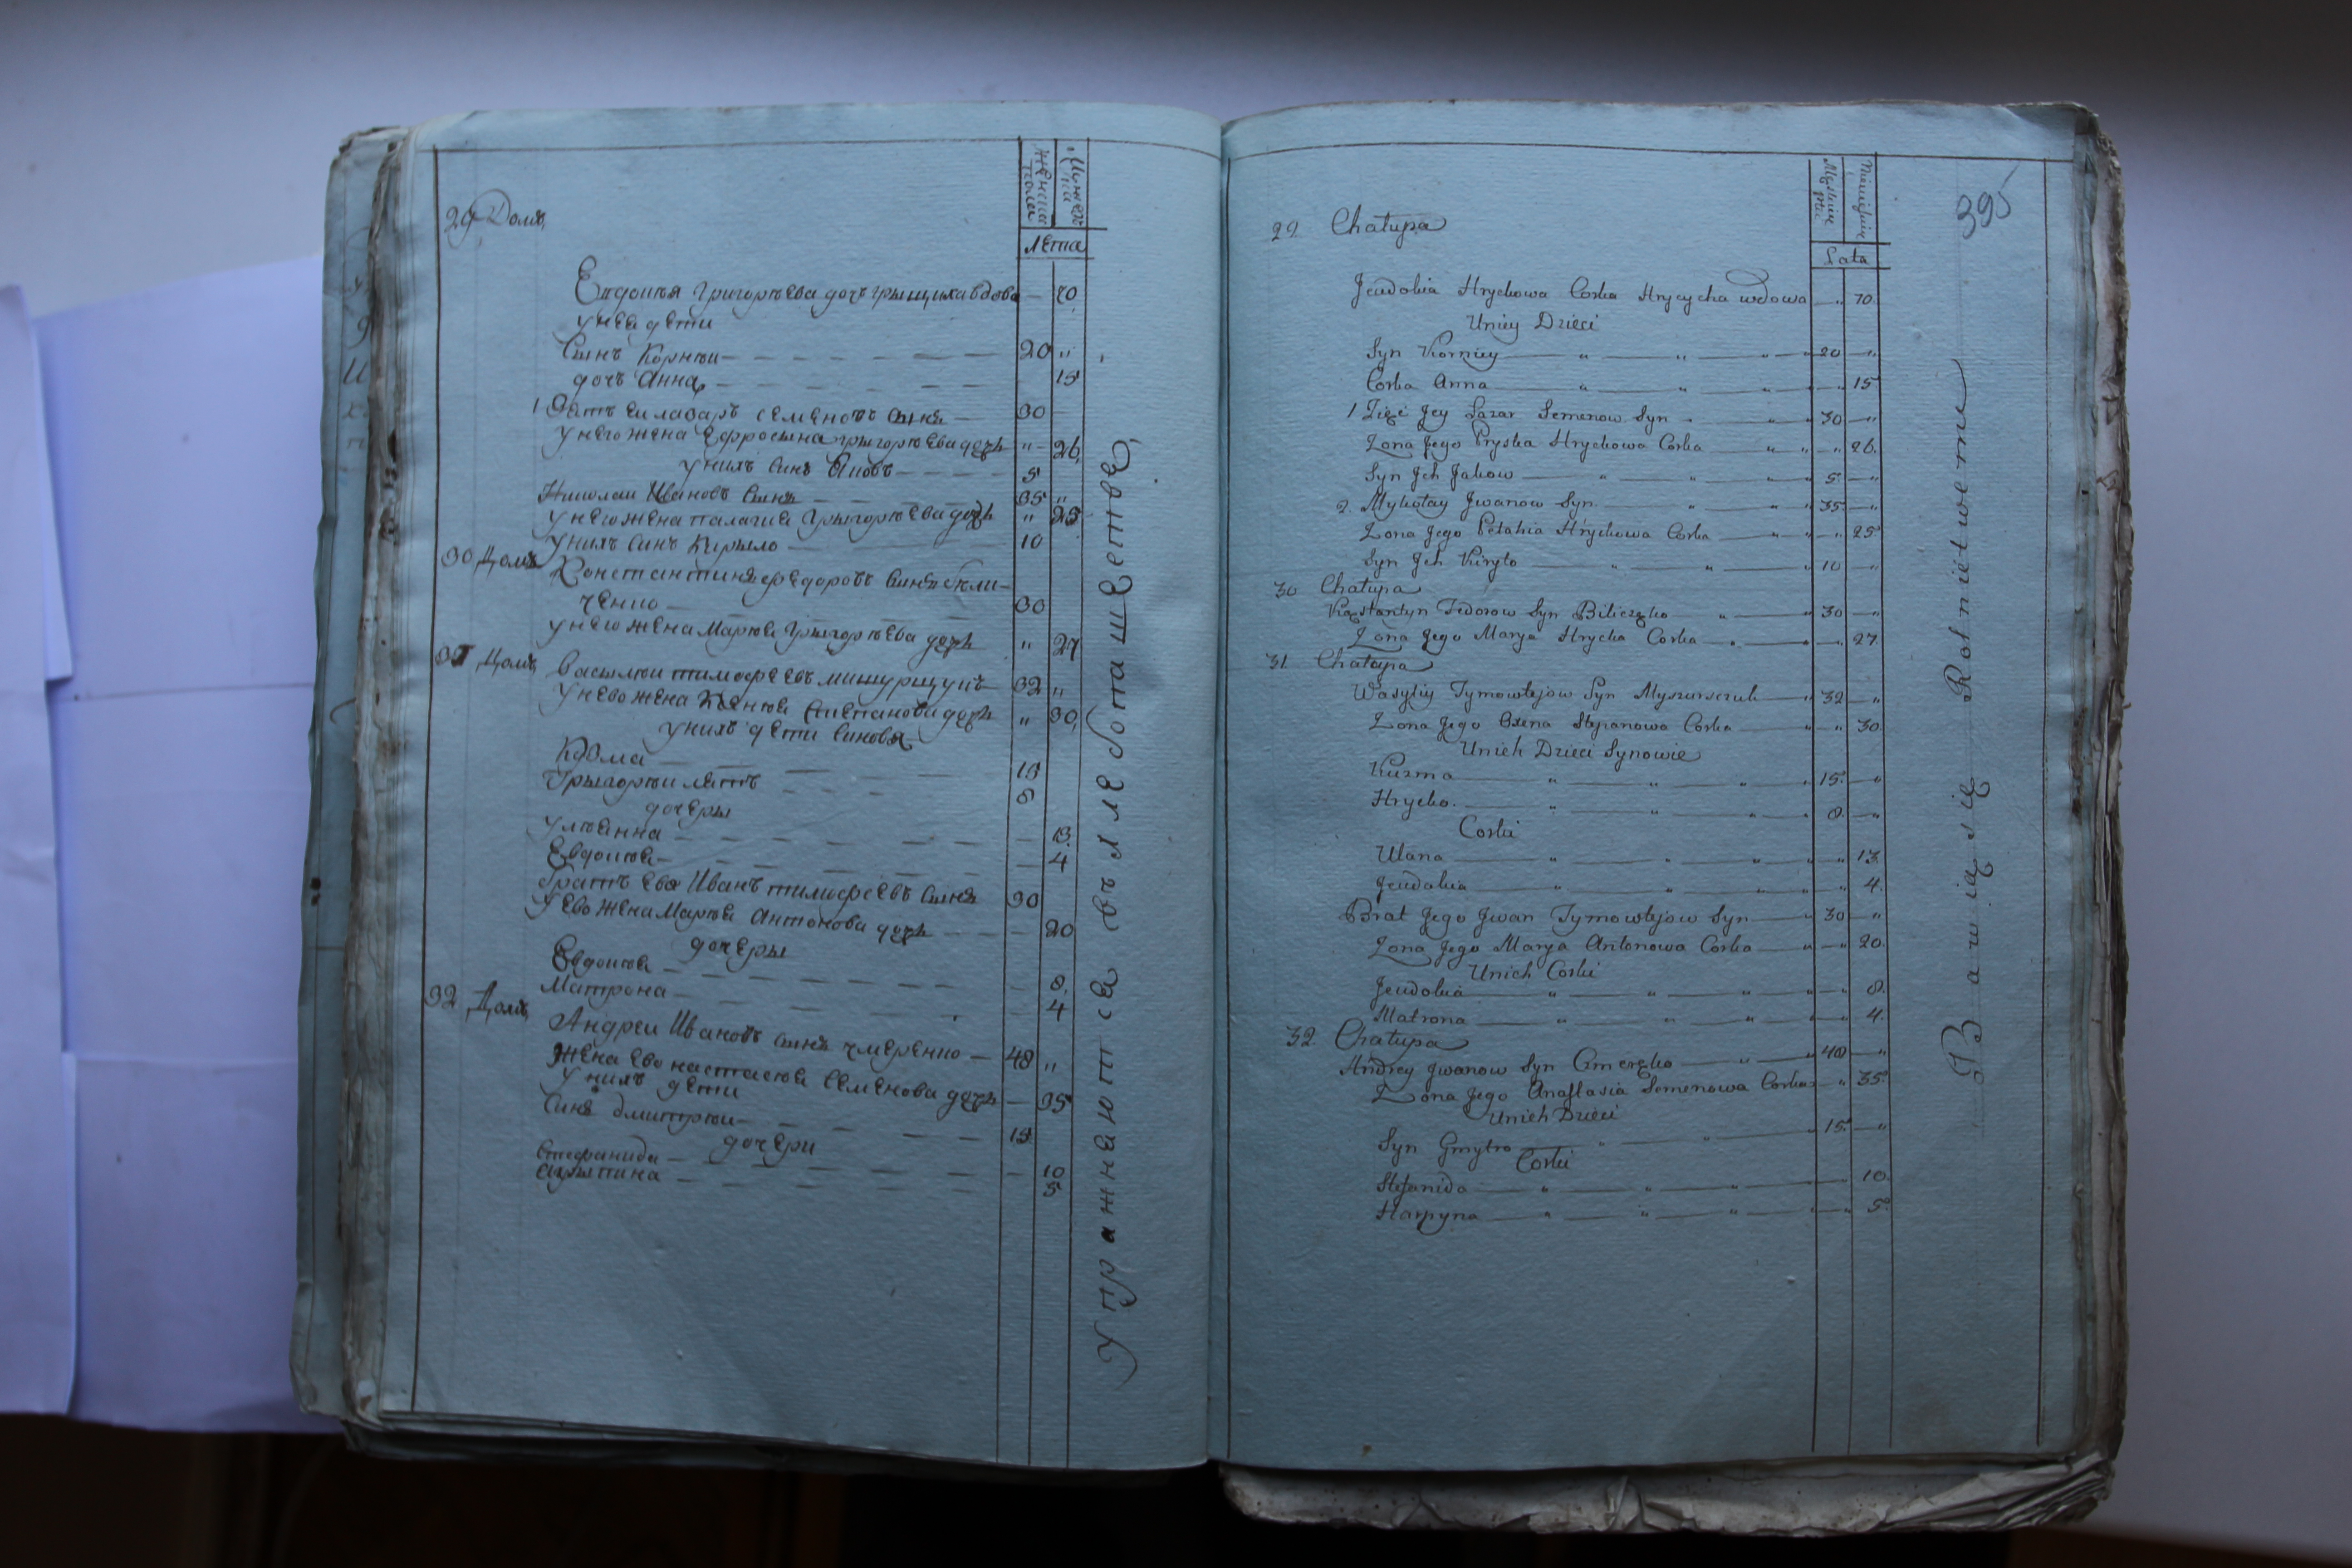 Женска
полка
Мужеск
Лѣта
29 Домъ
Евдокья Григорьева дочъ грыцыха вдова — 70
у неи дети
Синъ Корнѣи — 20 "
дочъ Анна — 15
1 Зять еи лазаръ семеновъ синъ — 30
у него жена Ефросина григорьева дочь " 26
у нихъ синъ Яковъ — 5
Николаи Ивановъ синъ — 35 "
у него жена палагия Григорьева дочь " 25
у нихъ синъ Кирыло — 10
30 Домъ
Константинъ федоровъ синъ
30
у него жена Марья Григорьева дочь " 27
31 Домъ
василѣи тимофеевъ мишурщукъ 32 "
у нево жена Ксенья Степанова дочь " 30
у нихъ дети синовя
Кузма — 15
Григорѣи летъ 8
дочеры
ульянна — 13
Евдокия — 4
братъ ево Иванъ тимофеевъ синъ 30
у ево жена Марья антонова дочь — 20
дочеры
Евдокия — 8
Матрона — 4
32 Домъ
Андреи Ивановъ синъ чмеренко — 48 "
Жена ево настасия семенова дочь — 35
у нихъ дети
Синъ дмитрѣи — 15
дочери
стефанида — 10
агрыпина — 5
Упражняются въ хлебопашестве
395
Lata
29 Chałupa
Jeudokia Hryckowa Corka Hrycycha wdowa — " 70
Uniey Dzieci
Syn Korniey — " — " 20 — "
Corka Anna — " — " — " 15
1 Zięć Jey Łazar Semenow Syn " 30 — "
Zona Jego Pryska Hryckowa Corka — " " 26.
Syn Jch Jakow — " — " 5 — "
2. Mykołay Jwanow Syn " 35 — "
Zona Jego Pełahia Hryckowa Corka — " " 25
Syn Jch Kiryło — " — " 10 — "
30 Chałupa
Kostantyn Fedorow Syn Biliczęko " — " 30 — "
Zona Jego Marya Hrycka Corka — " — " 27
31 Chałupa
Wasyliy Tymowtejow Syn Myszurszczuk — " 32 — "
Zona Jego Oxena Stepanowa Corka — " " 30
Unich Dzieci Synowie
Kuzma — " — " — " 15 — "
Hrycko — " — " — " 8 — "
Corki
Ulana — " — " — " 13
Jeudokia — " — " — " 4.
Brat Jego Jwan Tymowtejow Syn — " 30 — "
Zona Jego Marya Antonowa Corka — " — " 20.
Unich Corki
Jeudokia — " — " — " 8.
Matrona — " — " — " 4.
32. Chałupa
Andrey Jwanow Syn Cmeręko — " — " 48 — "
Zona Jego Anastasia Semenowa Corka — " 35
Unich Dzieci
Syn Gmytro — " — " 15 — "
Corki
Stefanida — " — " — " 10
Harpyna — " — " — " 5.
Bawią się Rolnictwem